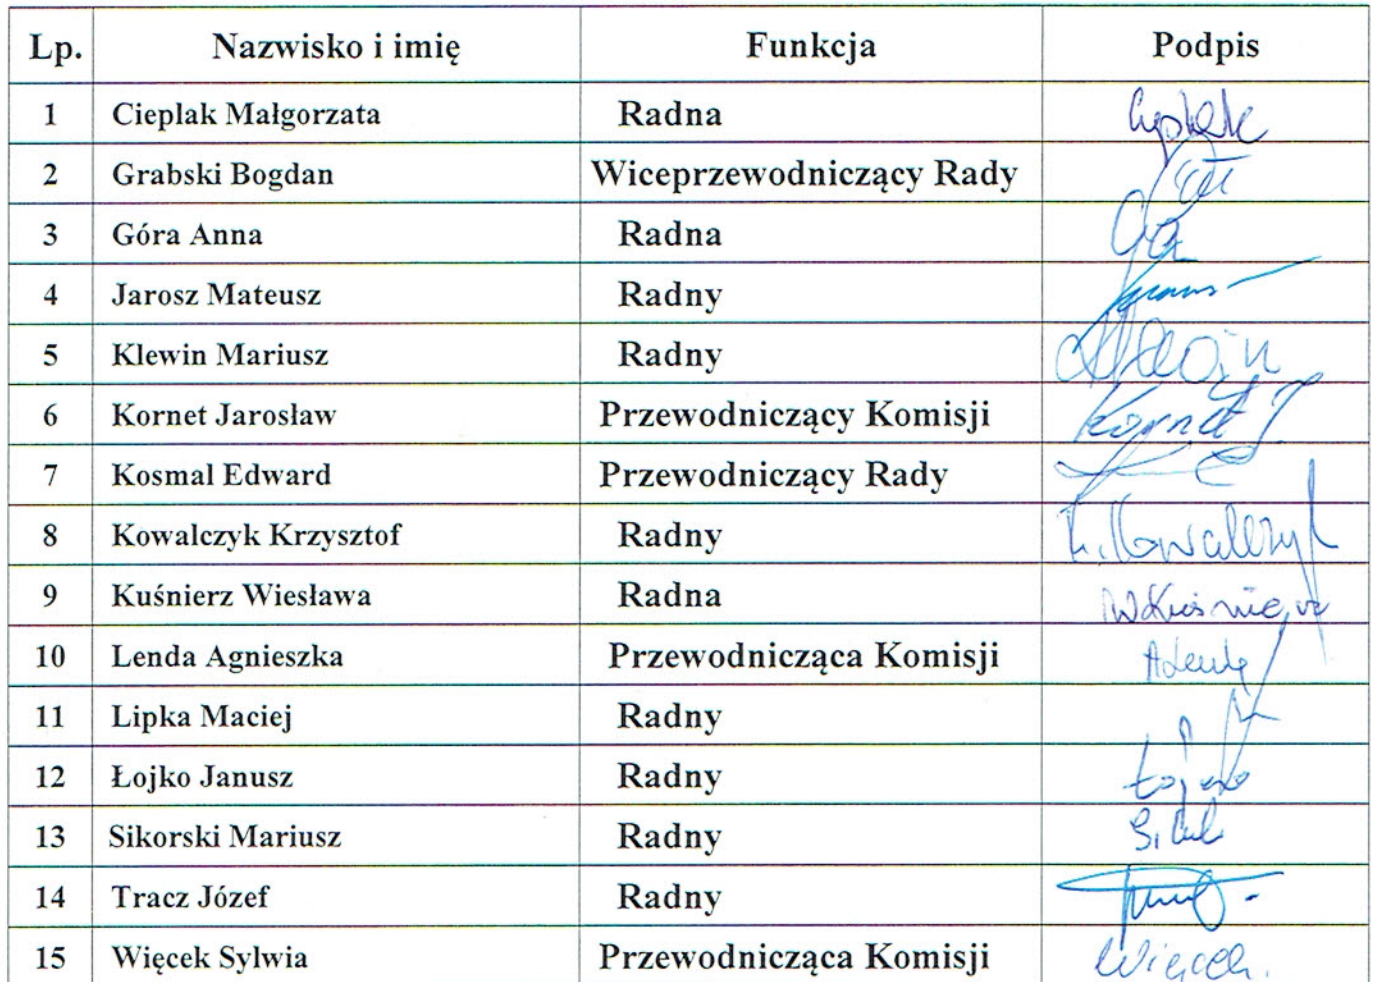 Lp. Nazwisko i imię Funkcja Podpis
1 Cieplak Małgorzata Radna
2 Grabski Bogdan Wiceprzewodniczący Rady
3 Góra Anna Radna
4 Jarosz Mateusz Radny
5 Klewin Mariusz Radny
6 Kornet Jarosław Przewodniczący Komisji Kornet J
7 Kosmal Edward Przewodniczący Rady
8 Kowalczyk Krzysztof Radny K. Kowalczyk
9 Kuśnierz Wiesława Radna W Kuśnierz
10 Lenda Agnieszka Przewodnicząca Komisji A Lenda
11 Lipka Maciej Radny
12 Łojko Janusz Radny Łojko
13 Sikorski Mariusz Radny
14 Tracz Józef Radny
15 Więcek Sylwia Przewodnicząca Komisji Więcek